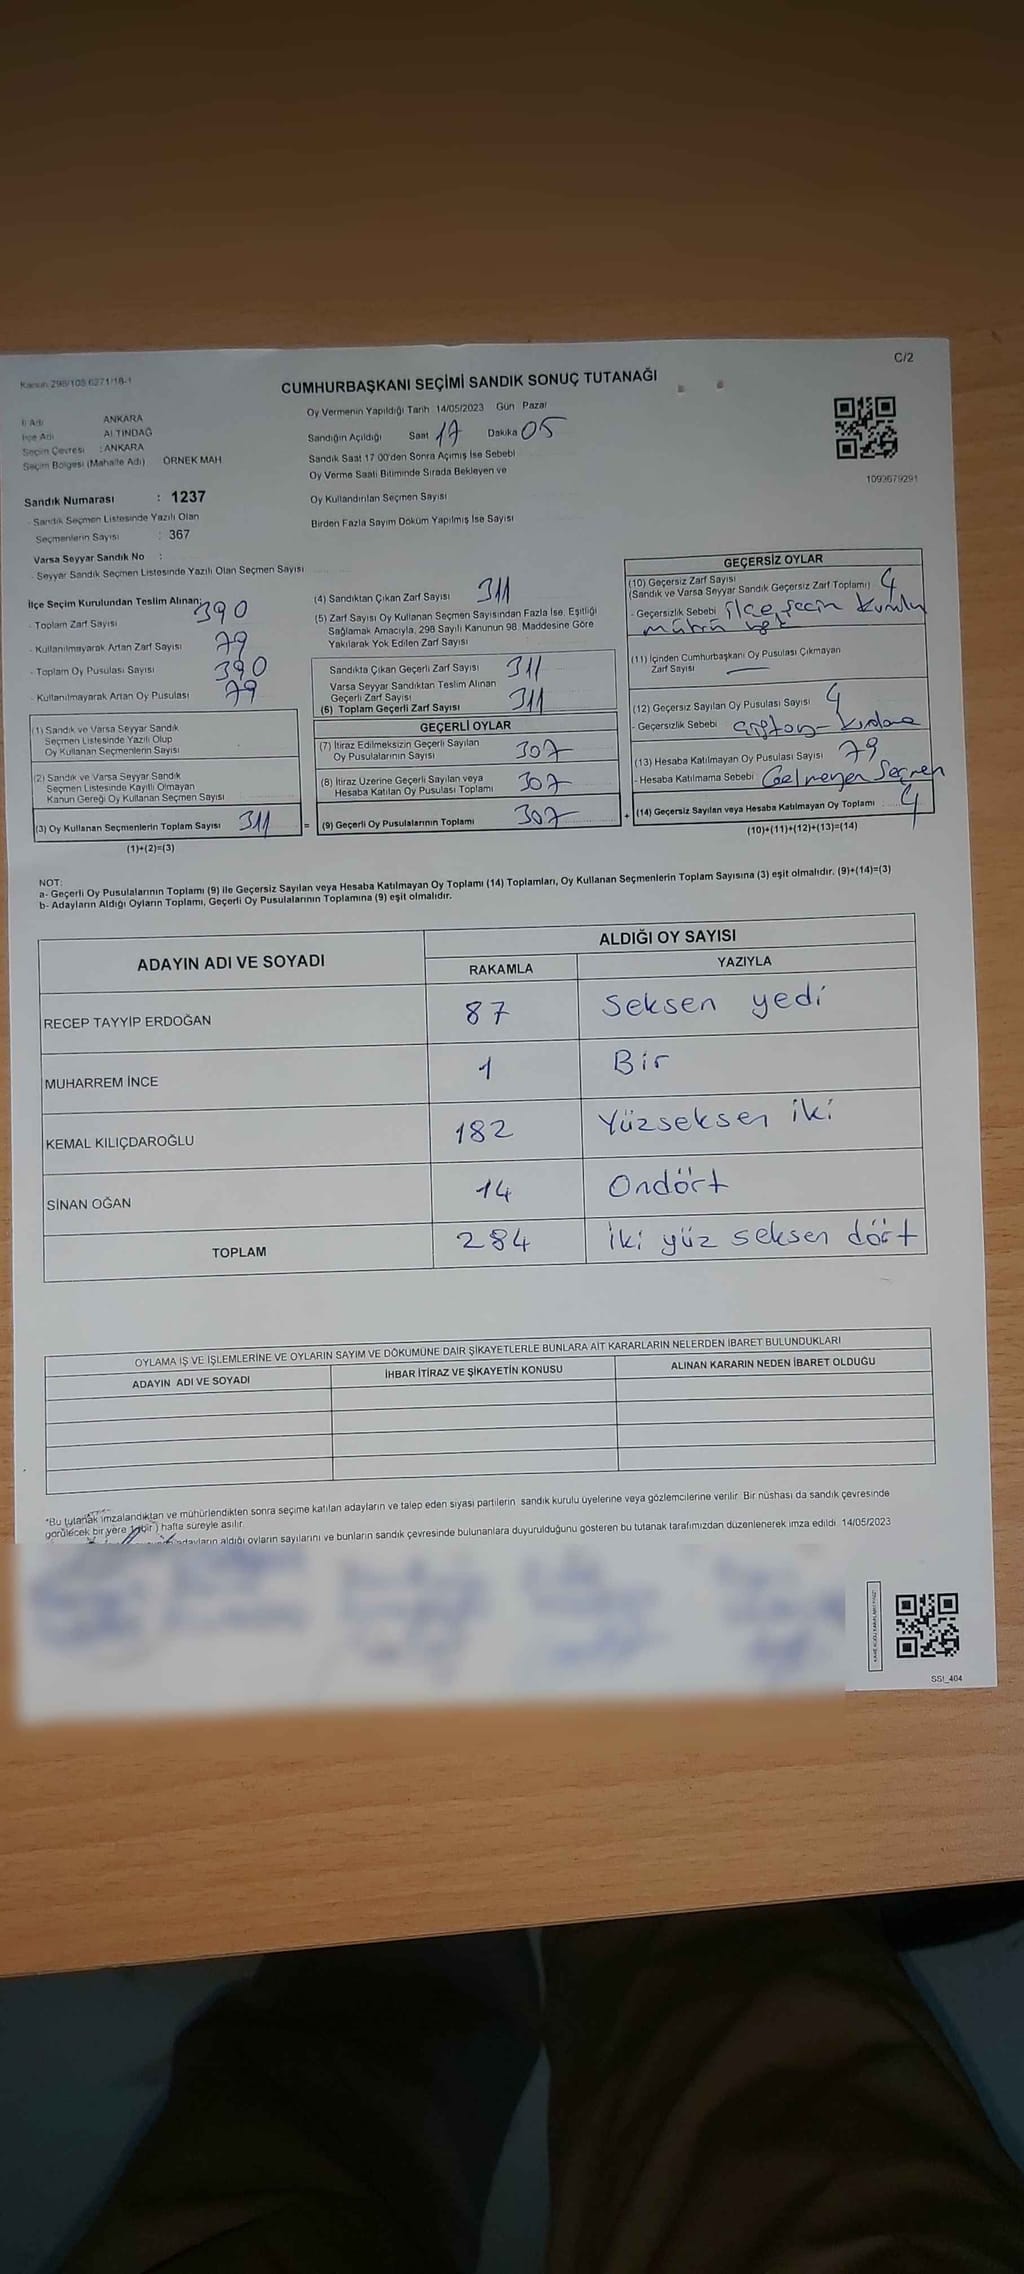 Kanun 298/105 6271/18-1
C/2
CUMHURBAŞKANI SEÇİMİ SANDIK SONUÇ TUTANAĞI
İl Adı ANKARA
İlçe Adı ALTINDAĞ
Seçim Çevresi : ANKARA
Seçim Bölgesi (Mahalle Adı) ÖRNEK MAH
Sandık Numarası : 1237
- Sandık Seçmen Listesinde Yazılı Olan
Seçmenlerin Sayısı : 367
Varsa Seyyar Sandık No :
- Seyyar Sandık Seçmen Listesinde Yazılı Olan Seçmen Sayısı
Oy Vermenin Yapıldığı Tarih 14/05/2023 Gün Pazar
Sandığın Açıldığı Saat 17 Dakika 05
Sandık Saat 17 00'den Sonra Açımış İse Sebebi
Oy Verme Saati Bitiminde Sırada Bekleyen ve
Oy Kullandırılan Seçmen Sayısı
Birden Fazla Sayım Döküm Yapılmış İse Sayısı
1093679291
İlçe Seçim Kurulundan Teslim Alınan:
- Toplam Zarf Sayısı 390
- Kullanılmayarak Artan Zarf Sayısı 79
- Toplam Oy Pusulası Sayısı 390
- Kullanılmayarak Artan Oy Pusulası 79
(1) Sandık ve Varsa Seyyar Sandık
Seçmen Listesinde Yazılı Olup
Oy Kullanan Seçmenlerin Sayısı
(2) Sandık ve Varsa Seyyar Sandık
Seçmen Listesinde Kayıtlı Olmayan
Kanun Gereği Oy Kullanan Seçmen Sayısı
(3) Oy Kullanan Seçmenlerin Toplam Sayısı 311 =
(1)+(2)=(3)
(4) Sandıktan Çıkan Zarf Sayısı 311
(5) Zarf Sayısı Oy Kullanan Seçmen Sayısından Fazla İse, Eşitliği
Sağlamak Amacıyla, 298 Sayılı Kanunun 98. Maddesine Göre
Yakılarak Yok Edilen Zarf Sayısı
Sandıkta Çıkan Geçerli Zarf Sayısı 311
Varsa Seyyar Sandıktan Teslim Alınan
Geçerli Zarf Sayısı
(6) Toplam Geçerli Zarf Sayısı 311
GEÇERLİ OYLAR
(7) İtiraz Edilmeksizin Geçerli Sayılan
Oy Pusulalarının Sayısı 307
(8) İtiraz Üzerine Geçerli Sayılan veya
Hesaba Katılan Oy Pusulası Toplamı 307
(9) Geçerli Oy Pusulalarının Toplamı 307 +
GEÇERSİZ OYLAR
(10) Geçersiz Zarf Sayısı
(Sandık ve Varsa Seyyar Sandık Geçersiz Zarf Toplamı) 4
- Geçersizlik Sebebi ilçe seçim kurulu
mührü yok
(11) İçinden Cumhurbaşkanı Oy Pusulası Çıkmayan
Zarf Sayısı —
(12) Geçersiz Sayılan Oy Pusulası Sayısı 4
- Geçersizlik Sebebi
(13) Hesaba Katılmayan Oy Pusulası Sayısı 79
- Hesaba Katılmama Sebebi Gelmeyen Seçmen
(14) Geçersiz Sayılan veya Hesaba Katılmayan Oy Toplamı : 4
(10)+(11)+(12)+(13)=(14)
NOT:
a- Geçerli Oy Pusulalarının Toplamı (9) ile Geçersiz Sayılan veya Hesaba Katılmayan Oy Toplamı (14) Toplamları, Oy Kullanan Seçmenlerin Toplam Sayısına (3) eşit olmalıdır. (9)+(14)=(3)
b- Adayların Aldığı Oyların Toplamı, Geçerli Oy Pusulalarının Toplamına (9) eşit olmalıdır.
ADAYIN ADI VE SOYADI
ALDIĞI OY SAYISI
RAKAMLA YAZIYLA
RECEP TAYYİP ERDOĞAN 87 Seksen yedi
MUHARREM İNCE 1 Bir
KEMAL KILIÇDAROĞLU 182 Yüzseksen iki
SİNAN OĞAN 14 Ondört
TOPLAM 284 iki yüz seksen dört
OYLAMA İŞ VE İŞLEMLERİNE VE OYLARIN SAYIM VE DÖKÜMÜNE DAİR ŞİKAYETLERLE BUNLARA AİT KARARLARIN NELERDEN İBARET BULUNDUKLARI
ADAYIN ADI VE SOYADI İHBAR İTİRAZ VE ŞİKAYETİN KONUSU ALINAN KARARIN NEDEN İBARET OLDUĞU
*Bu tutanak imzalandıktan ve mühürlendikten sonra seçime katılan adayların ve talep eden siyasi partilerin sandık kurulu üyelerine veya gözlemcilerine verilir Bir nüshası da sandık çevresinde
görülecek bir yere 1(bir) hafta süreyle asılır
adayların aldığı oyların sayılarını ve bunların sandık çevresinde bulunanlara duyurulduğunu gösteren bu tutanak tarafımızdan düzenlenerek imza edildi 14/05/2023
SSI_404